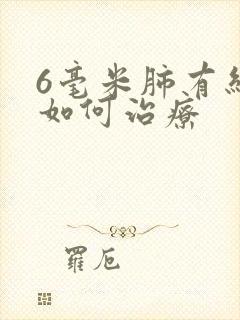 6毫米肺有结
如何治疗
羅卮